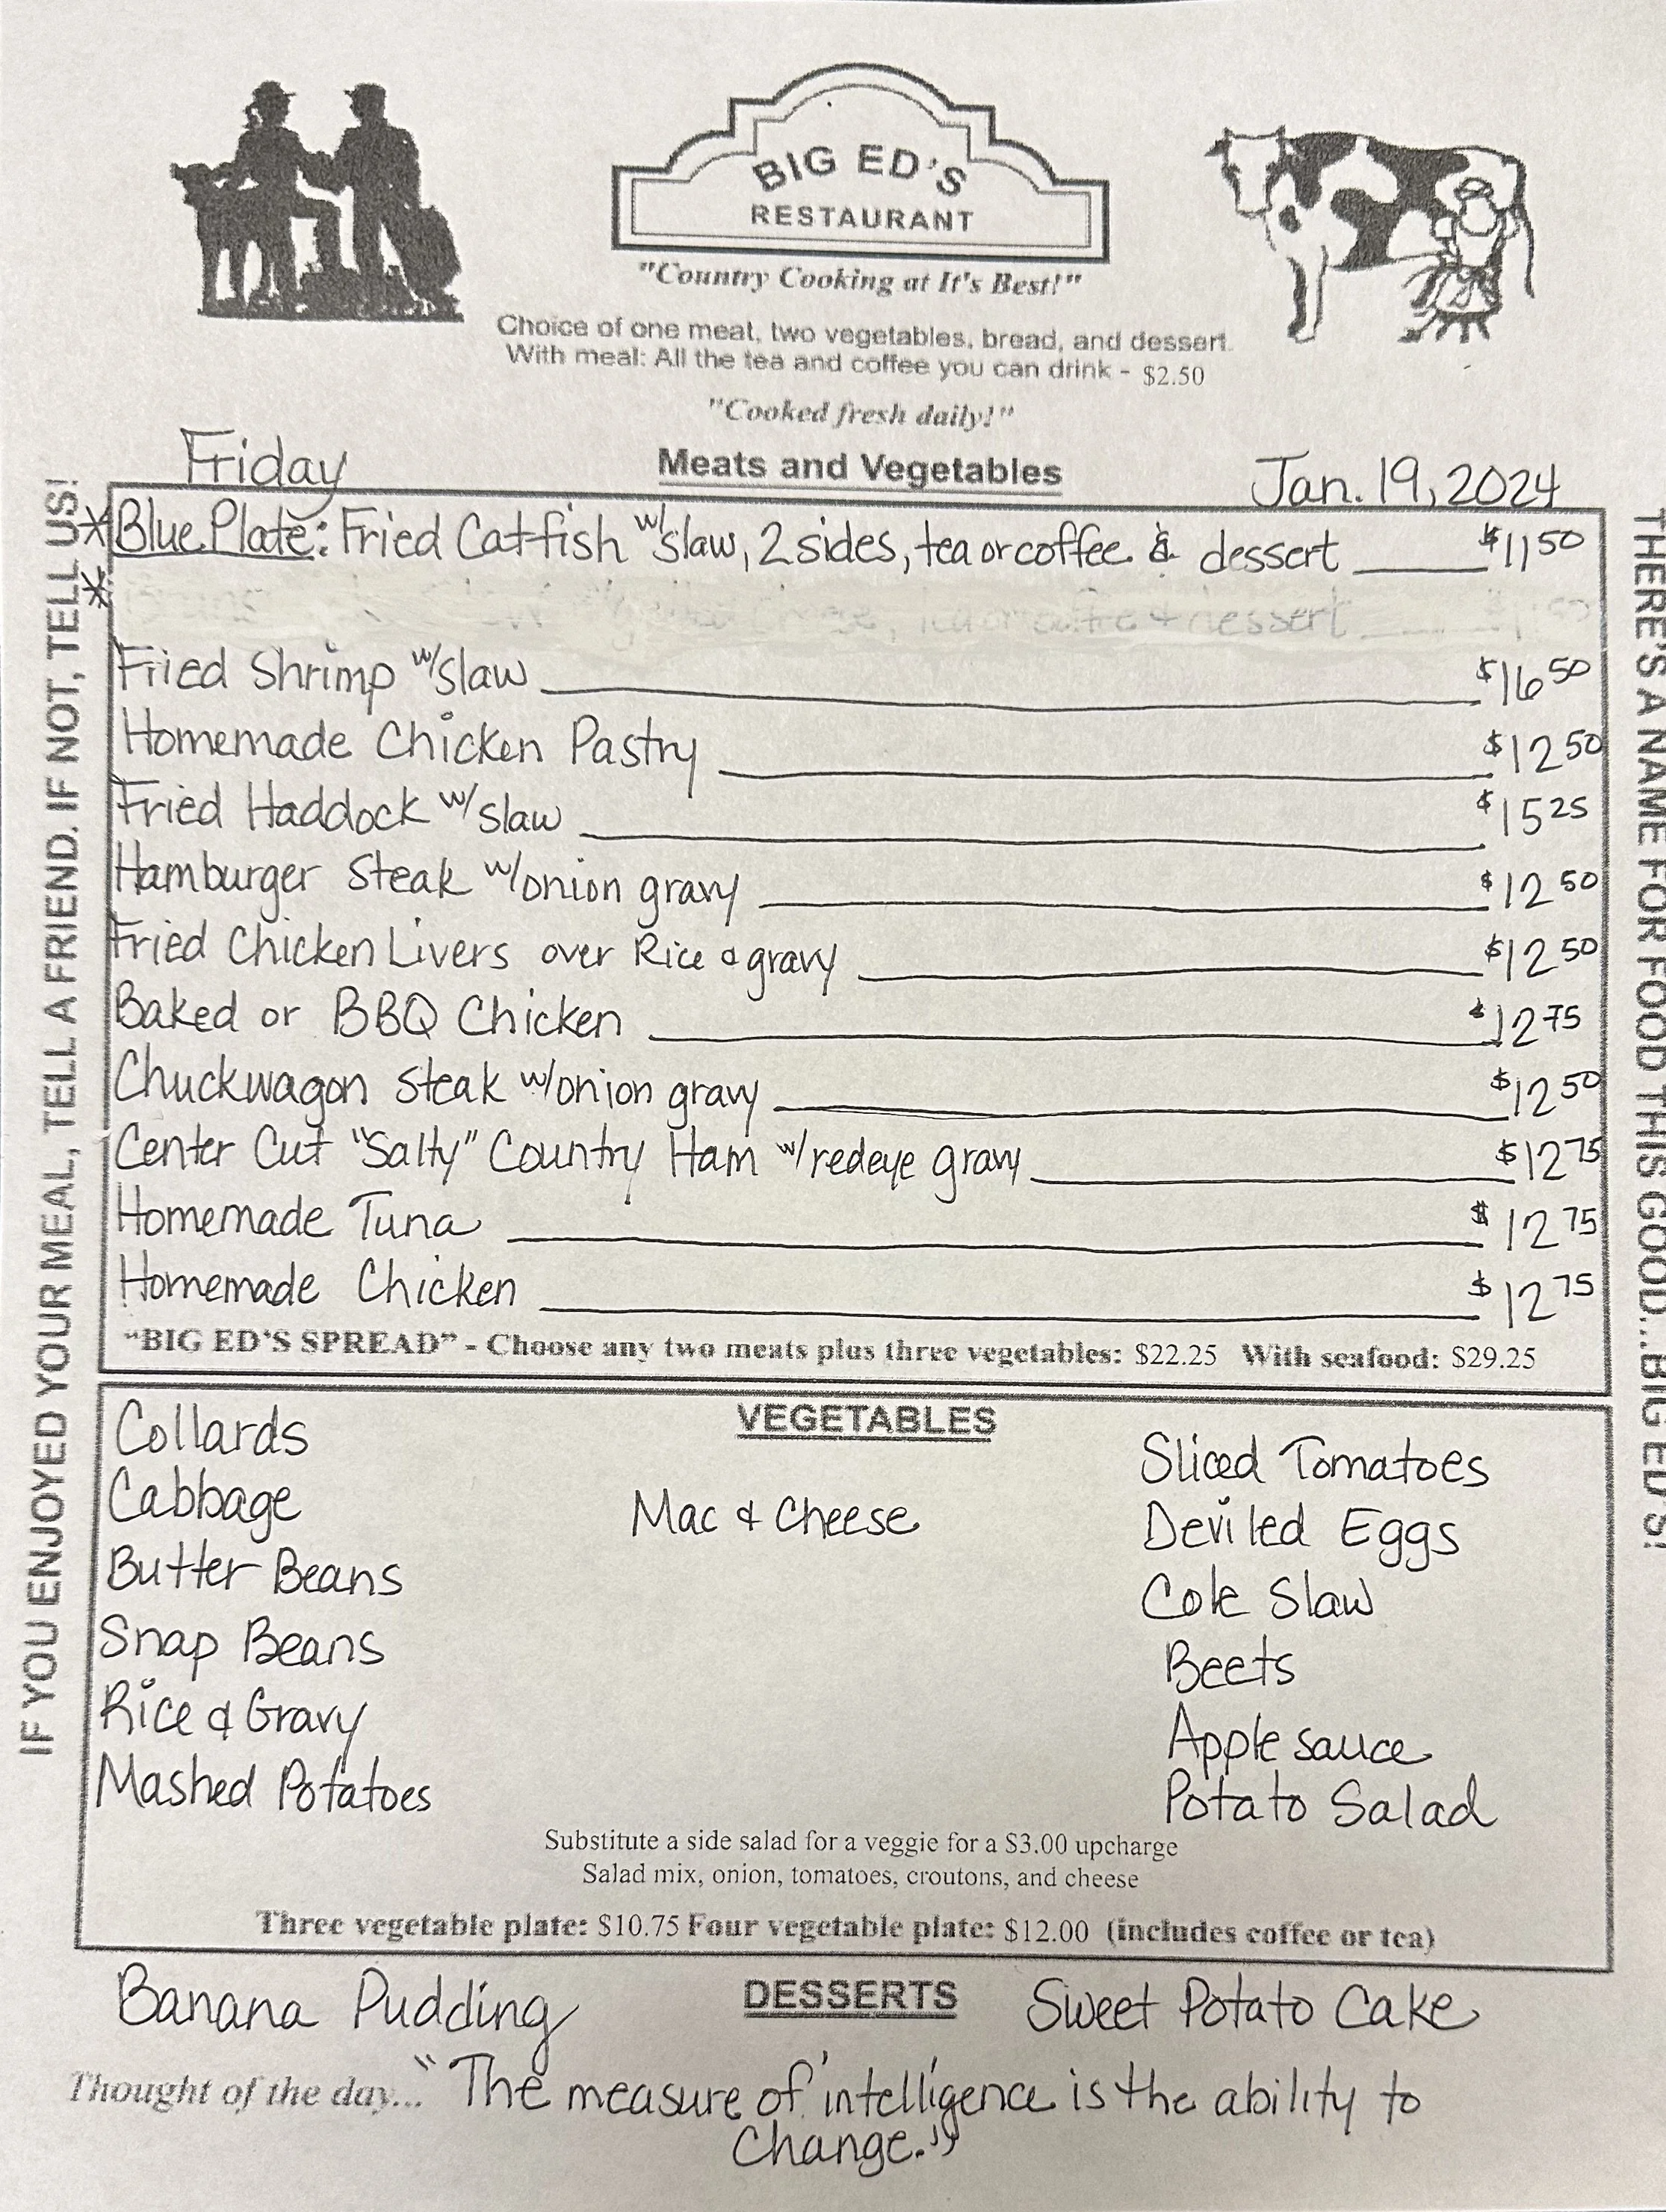 BIG ED'S
RESTAURANT
"Country Cooking at It's Best!"
Choice of one meat, two vegetables, bread, and dessert.
With meal: All the tea and coffee you can drink - $2.50
"Cooked fresh daily!"
Friday
Meats and Vegetables
Jan. 19, 2024
IF YOU ENJOYED YOUR MEAL, TELL A FRIEND. IF NOT, TELL US!
THERE'S A NAME FOR FOOD THIS GOOD...BIG ED'S!
*Blue Plate: Fried Catfish w/slaw, 2 sides, tea or coffee & dessert $11 50
* dessert
Fried Shrimp w/slaw $16 50
Homemade Chicken Pastry $12 50
Fried Haddock w/slaw $15 25
Hamburger Steak w/onion gravy $12 50
Fried Chicken Livers over Rice & gravy $12 50
Baked or BBQ Chicken $12 75
Chuckwagon Steak w/onion gravy $12 50
Center Cut "Salty" Country Ham w/redeye gravy $12 75
Homemade Tuna $12 75
Homemade Chicken $12 75
"BIG ED'S SPREAD" - Choose any two meats plus three vegetables: $22.25 With seafood: $29.25
VEGETABLES
Collards
Cabbage
Butter Beans
Snap Beans
Rice & Gravy
Mashed Potatoes
Mac & Cheese
Sliced Tomatoes
Deviled Eggs
Cole Slaw
Beets
Apple sauce
Potato Salad
Substitute a side salad for a veggie for a $3.00 upcharge
Salad mix, onion, tomatoes, croutons, and cheese
Three vegetable plate: $10.75 Four vegetable plate: $12.00 (includes coffee or tea)
DESSERTS
Banana Pudding
Sweet Potato Cake
Thought of the day... "The measure of 'intelligence' is the ability to
Change."